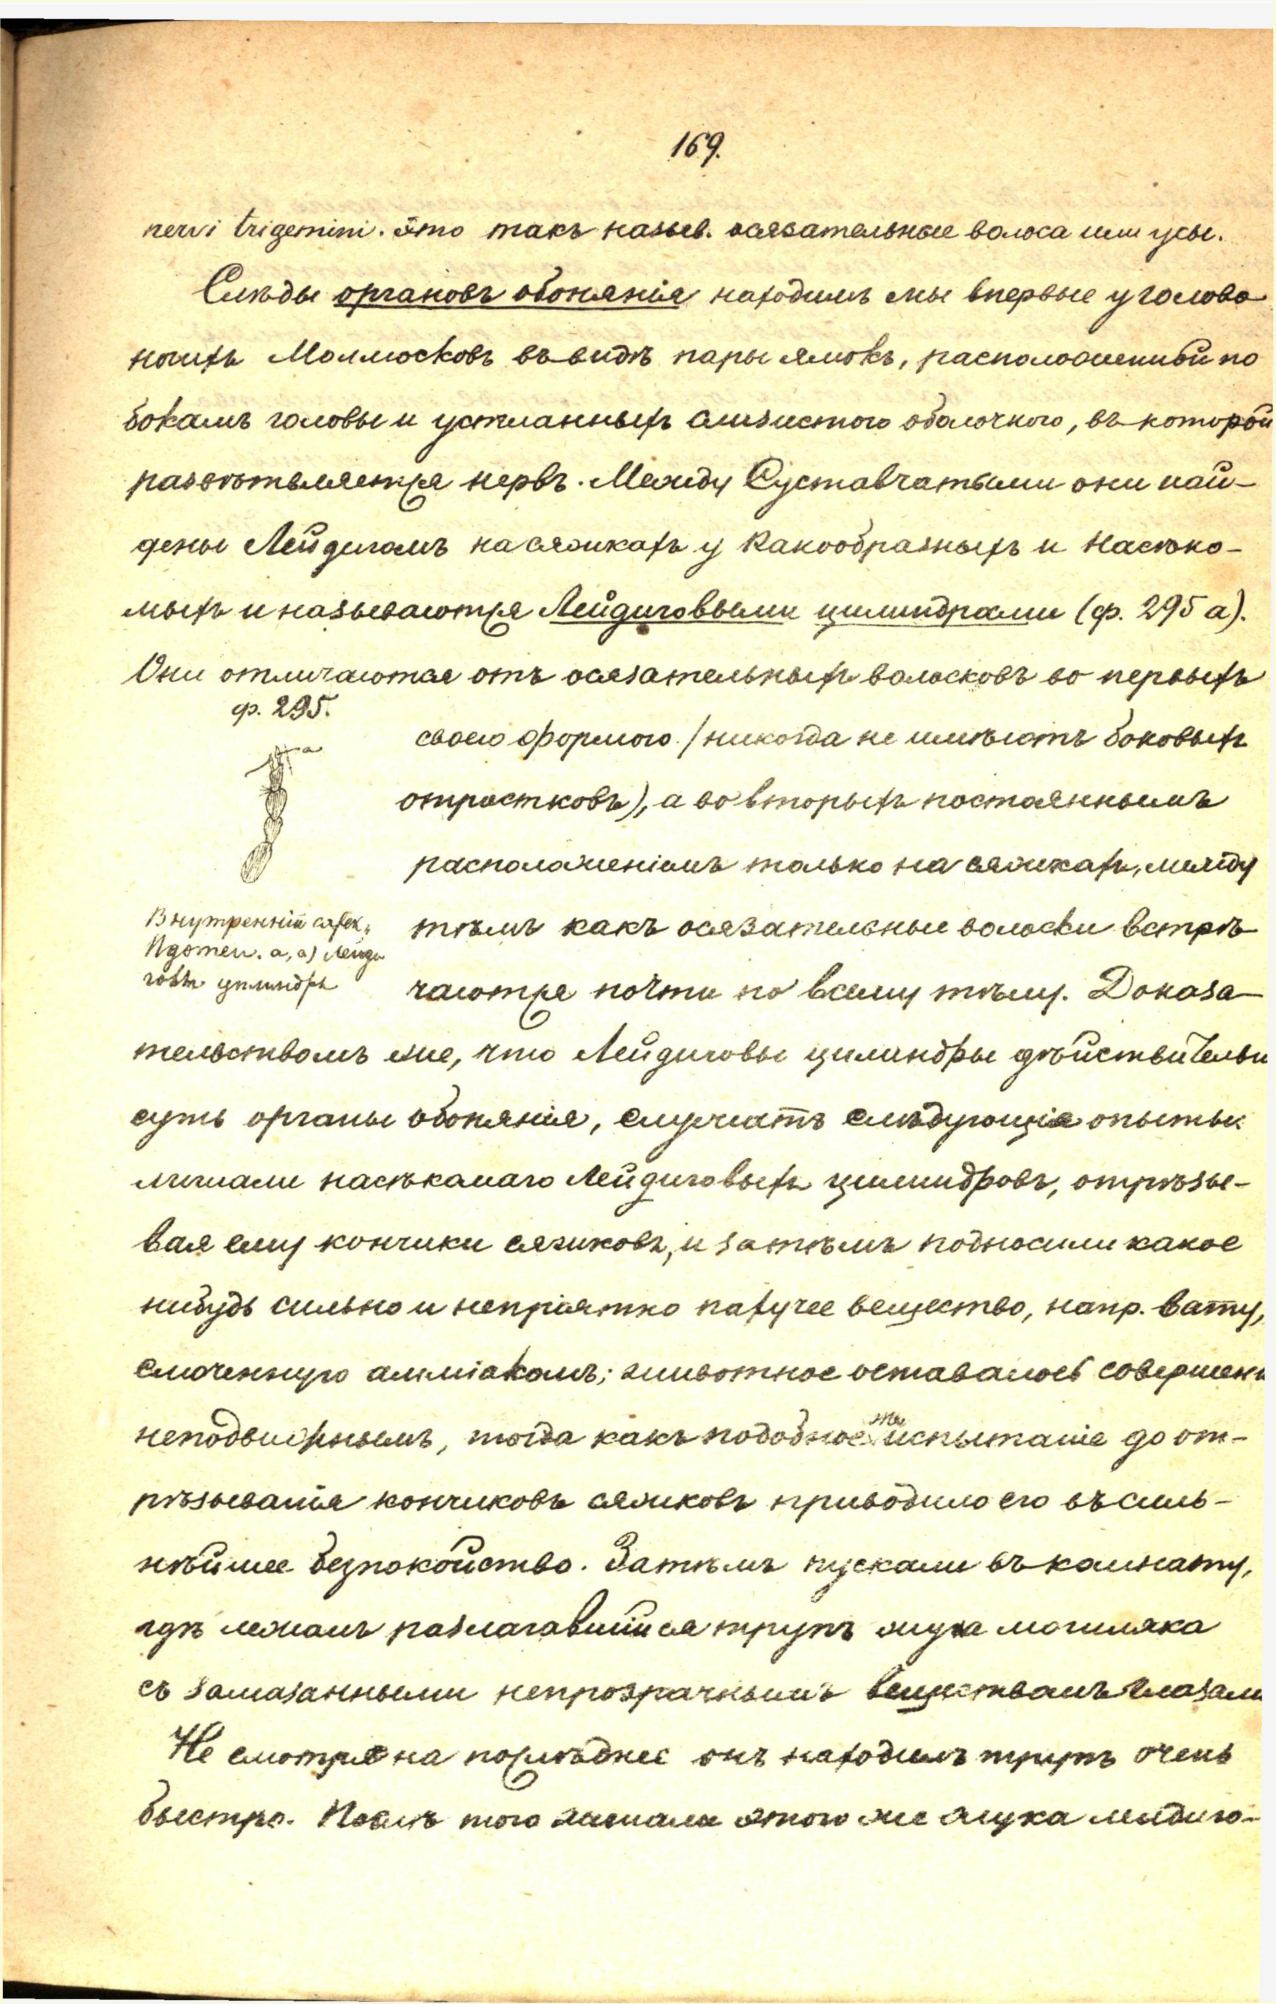 169.
nervi trigemini. Это такъ назыв. осязательные волоса или усы.
Слѣды органовъ обонянія находимъ мы впервые у голово
ногихъ Моллюсковъ въ видѣ пары ямокъ, расположенной по
бокамъ головы и устланныхъ слизистою оболочкою, въ которой
развѣтвляется нервъ. Между Суставчатыми они най-
дены Лейдигомъ на сяжкахъ у Ракообразныхъ и Насѣко-
мыхъ и называются Лейдиговыми цилиндрами (ф. 295 а).
Они отличаются отъ осязательныхъ волосковъ во первыхъ
ф. 295.
а
своею формою (никогда не имѣютъ боковыхъ
отростковъ), а во вторыхъ постояннымъ
расположеніемъ только на сяжкахъ, между
Внутренній сяжек.
Идотеи. а, а) Лейди
говы цилиндры
тѣмъ какъ осязательные волоски встрѣ
чаются почти по всему тѣлу. Доказа-
тельствомъ же, что Лейдиговы цилиндры дѣйствительн
суть органы обонянія, служатъ слѣдующіе опыты:
лишали насѣкомаго Лейдиговыхъ цилиндровъ, отрѣзы-
вая ему кончики сяжковъ, и затѣмъ подносили какое
нибудь сильно и непріятно пахучее вещество, напр. вату,
смоченную амміакомъ; животное оставалось совершенн
неподвижнымъ, тогда какъ подобное же испытаніе до от-
рѣзыванія кончиковъ сяжковъ приводило его въ силь-
нѣйшее безпокойство. Затѣмъ пускали въ комнату,
гдѣ лежалъ разлагавшійся трупъ жука могиляка
съ замазанными непрозрачнымъ веществомъ глазами
Не смотря на послѣднее онъ находилъ трупъ очень
быстро. Послѣ того лишали этого же жука лейдиго-